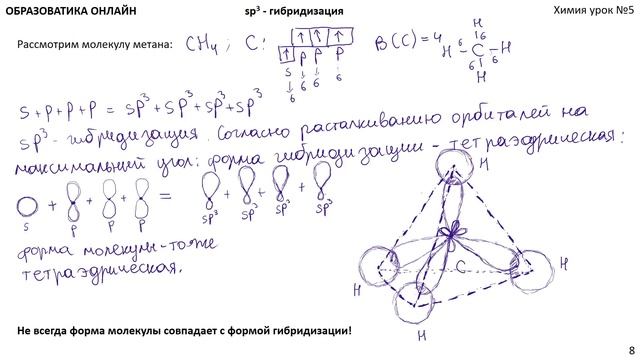 ОБРАЗОВАТИКА ОНЛАЙН sp³ - гибридизация Химия урок №5
Рассмотрим молекулу метана: CH₄; C: ↑ ↑ ↑ ↑ В(С)=4
s p p p
б б б б
H
б
H б C б H
б
H
s+p+p+p = sp³+sp³+sp³+sp³
sp³ - гибридизация. Согласно расталкиванию орбиталей на
максимальный угол: форма гибридизации - тетраэдрическая:
+ + + = + + +
s p p p sp³ sp³ sp³ sp³
форма молекулы - тоже
тетраэдрическая.
H
C
H H
H
Не всегда форма молекулы совпадает с формой гибридизации!
8